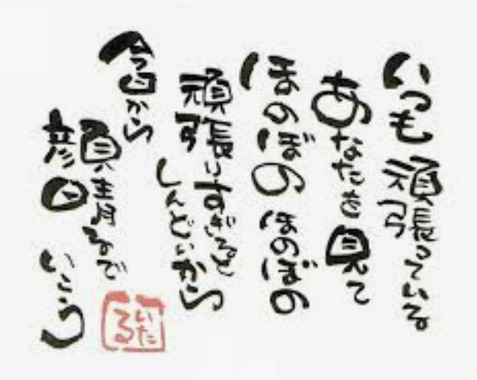 いつも頑張っている
あなたを見て
ほのぼの ほのぼの
頑張りすぎると
しんどいから
今日から
顔晴るで
いこう
いたる